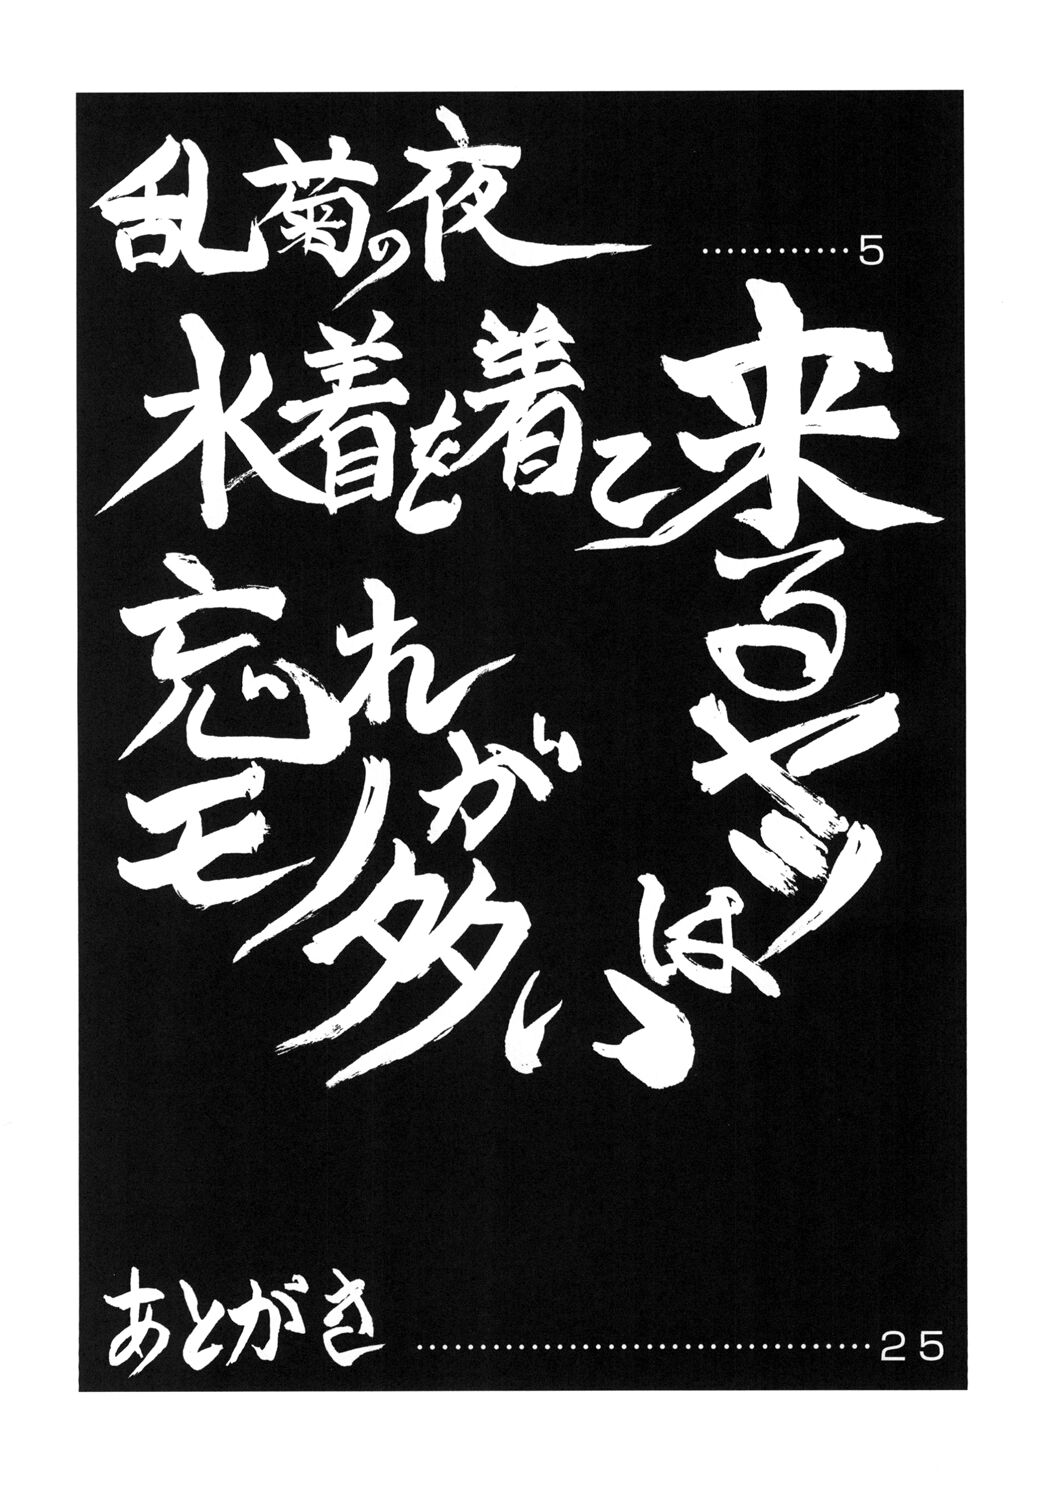 乱菊の夜 …………5
水着を着て来るヤツは
忘れモノが多い
あとがき ……………………………25